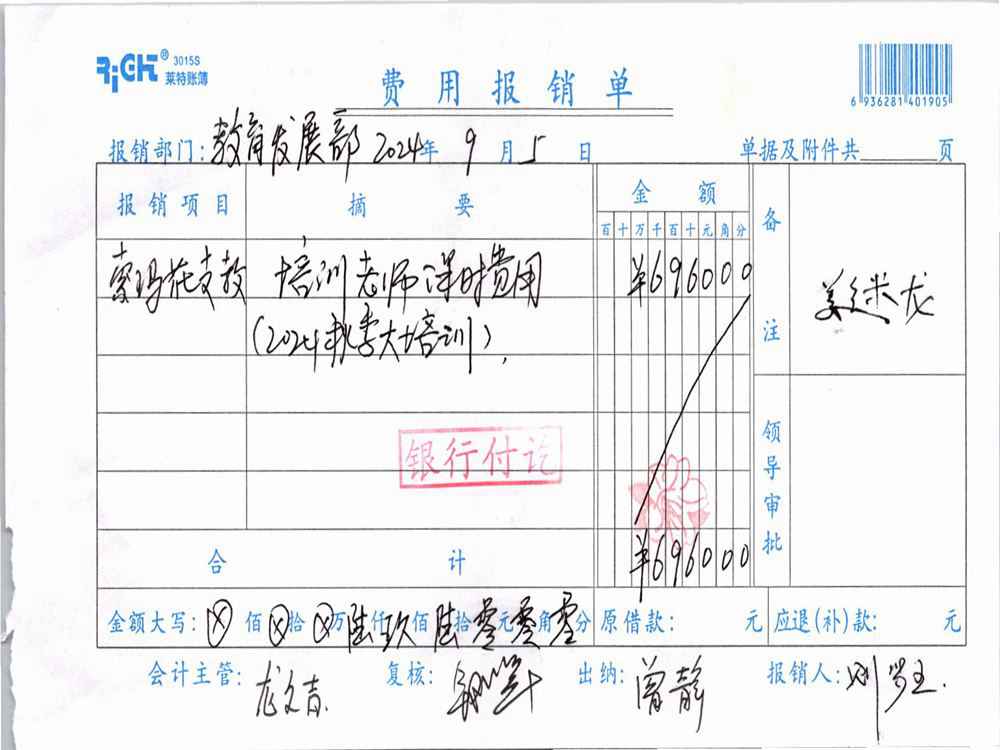 RiGHT® 3015S
莱特账簿
费用报销单
6 936281 401905
报销部门：教育发展部 2024年 9月 5日 单据及附件共 页
报销项目 摘要 金额 备注
百十万千百十元角分
索玛花支教 培训老师课时费用 ¥696000
(2024秋季大培训)
姜继龙
银行付讫
领导审批
合计 ¥696000
金额大写：ⓧ佰ⓧ拾ⓧ万陆仟玖佰陆拾零元零角零分 原借款： 元 应退(补)款： 元
会计主管：龙文吉 复核： 出纳：曾静 报销人：